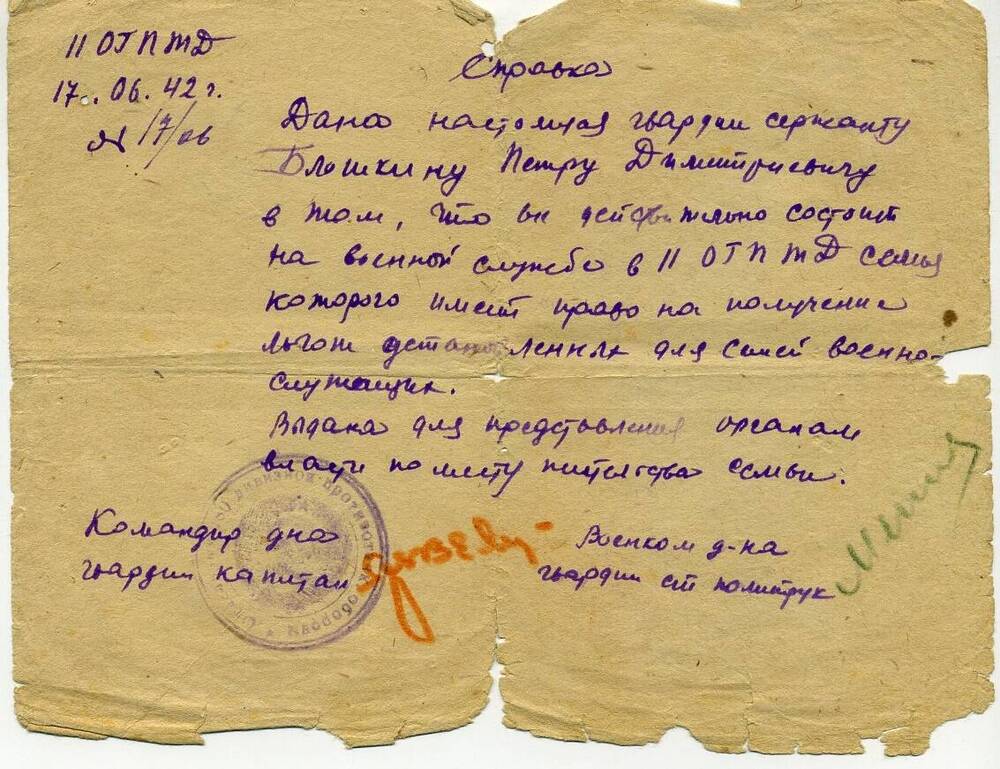 11 ОГПТД
17. 06. 42 г.
№ 17/06
Справка
Дана настоящая гвардии сержанту
Блошкину Петру Димитриевичу
в том, что он действительно состоит
на военной службе в 11 ОГПТД семья
которого имеет право на получение
льгот установленных для семей военно-
служащих.
Выдана для представления органам
власти по месту жительства семьи.
Командир д-на
гвардии капитан
Военком д-на
гвардии ст политрук